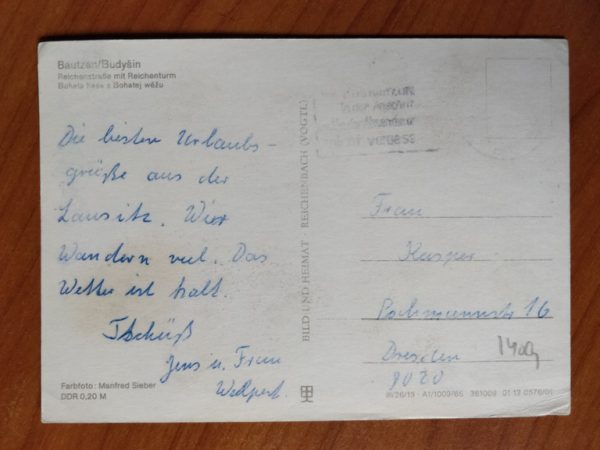 Bautzen/Budyšin
Reichenstraße mit Reichenturm
Bohata hasa z Bohatej wěžu
Die besten Urlaubs-
grüße aus der
Lausitz. Wir
Wandern viel. Das
Wetter ist kalt.
Tschüß
Jens u. Frau
Farbfoto: Manfred Sieber
DDR 0,20 M
BILD UND HEIMAT · REICHENBACH (VOGTL)
Frau
Kasper
16
Dresden
8020